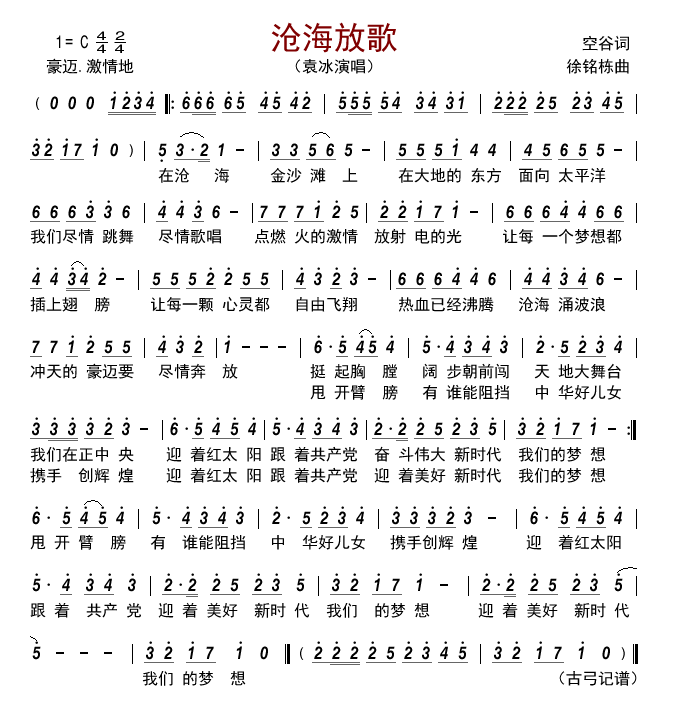 沧海放歌
1= C 4/4 2/4 空谷词
豪迈.激情地 （袁冰演唱） 徐铭栋曲
( 0 0 0 1234 ‖: 666 65 45 42 | 555 54 34 31 | 222 25 23 45 |
32 17 1 0 ) | 5 3·2 1 – | 3 3 56 5 – | 5 5 5 1 4 4 | 4 5 6 5 5 – |
在沧 海 金沙 滩 上 在大地的 东方 面向 太平洋
6 6 6 3 3 6 | 4 4 3 6 – | 7 7 7 1 2 5 | 2 2 1 7 1 – | 6 6 6 4 4 6 6 |
我们尽情 跳舞 尽情歌唱 点燃 火的激情 放射 电的光 让每 一个梦想都
4 4 34 2 – | 5 5 5 2 2 5 5 | 4 3 2 3 – | 6 6 6 4 4 6 | 4 4 3 4 6 – |
插上翅 膀 让每一颗 心灵都 自由飞翔 热血已经沸腾 沧海 涌波浪
7 7 1 2 5 5 | 4 3 2 | 1 – – – | 6· 5 45 4 | 5· 4 3 4 3 | 2· 5 2 3 4 |
冲天的 豪迈要 尽情奔 放 挺 起胸 膛 阔 步朝前闯 天 地大舞台
甩 开臂 膀 有 谁能阻挡 中 华好儿女
3 3 3 3 2 3 – | 6· 5 4 5 4 | 5· 4 3 4 3 | 2·2 2 5 2 3 5 | 3 2 1 7 1 – :‖
我们在正中 央 迎 着红太 阳 跟 着共产党 奋 斗伟大 新时代 我们的梦 想
携手 创辉 煌 迎 着红太 阳 跟 着共产党 迎 着美好 新时代 我们的梦 想
6· 5 4 5 4 | 5· 4 3 4 3 | 2· 5 2 3 4 | 3 3 3 2 3 – | 6· 5 4 5 4 |
甩 开 臂 膀 有 谁能阻挡 中 华好儿女 携手创辉 煌 迎 着红太阳
5· 4 3 4 3 | 2·2 2 5 2 3 5 | 3 2 1 7 1 – | 2·2 2 5 2 3 5 |
跟 着 共产 党 迎 着 美好 新时 代 我们 的梦 想 迎 着 美好 新时 代
5 – – – | 3 2 1 7 1 0 ‖ ( 2 2 2 2 5 2 3 4 5 | 3 2 1 7 1 0 ) ‖
我们 的梦 想 （古弓记谱）